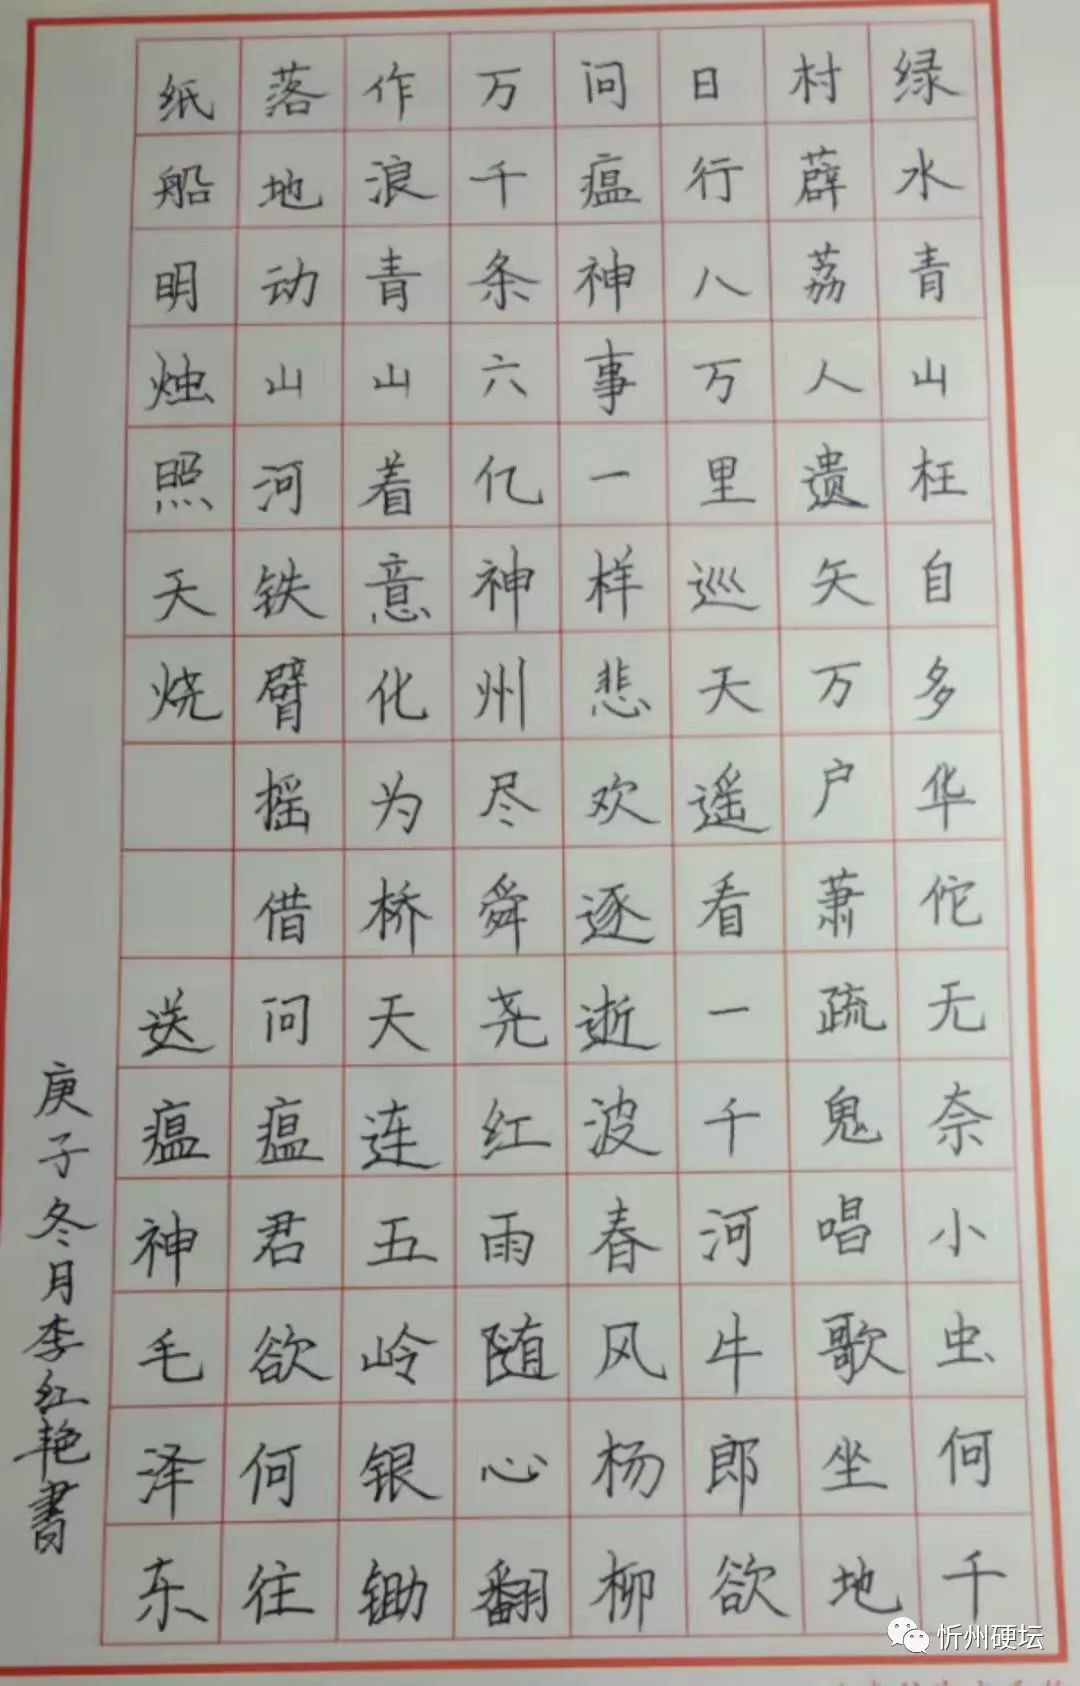 绿水青山枉自多华佗无奈小虫何千
村薜荔人遗矢万户萧疏鬼唱歌坐地
日行八万里巡天遥看一千河牛郎欲
问瘟神事一样悲欢逐逝波春风杨柳
万千条六亿神州尽舜尧红雨随心翻
作浪青山着意化为桥天连五岭银锄
落地动山河铁臂摇借问瘟君欲何往
纸船明烛照天烧 送瘟神毛泽东
庚子冬月李红艳書
忻州硬坛